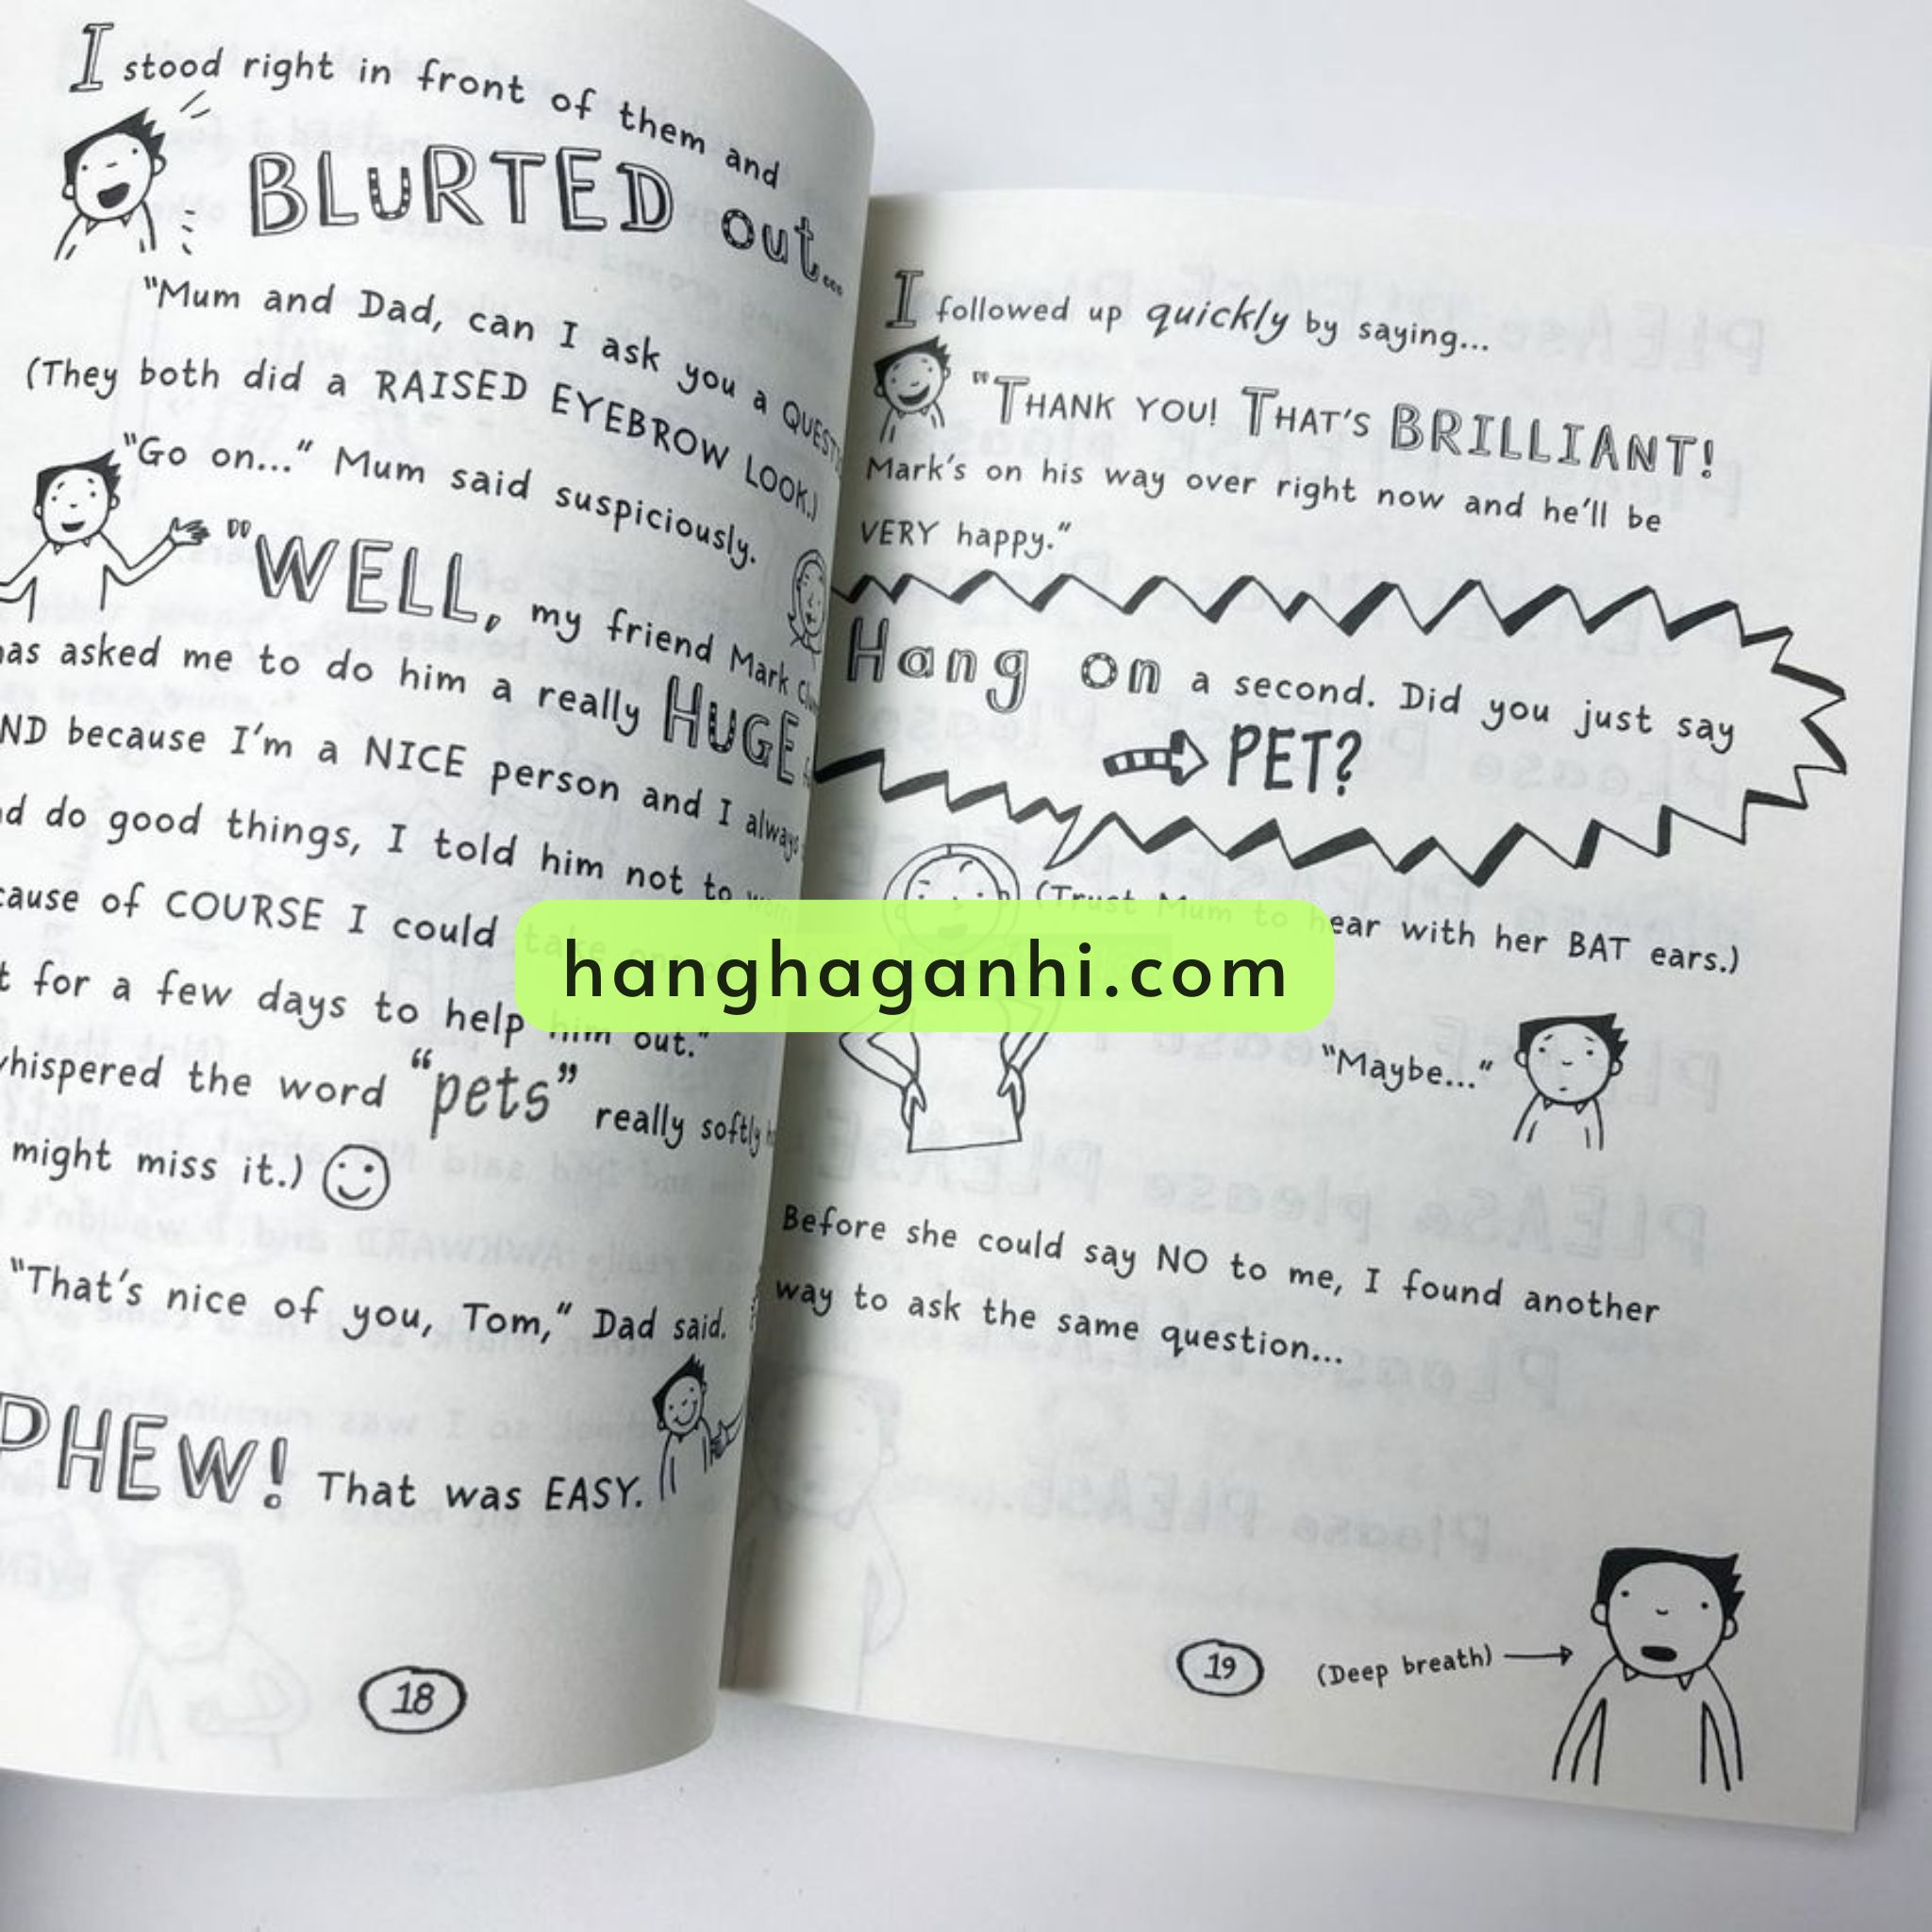 I stood right in front of them and
BLURTED out...
"Mum and Dad, can I ask you a
(They both did a RAISED EYEBROW LOOK.)
"Go on..." Mum said suspiciously.
"WELL, my friend Mark
asked me to do him a really HUGE
because I'm a NICE person and I always
do good things, I told him not to
of COURSE I could take
for a few days to help him out."
the word "pets" really softly
might miss it.)
"That's nice of you, Tom," Dad said.
PHEW! That was EASY.
18
I followed up quickly by saying...
"THANK YOU! THAT'S BRILLIANT!
Mark's on his way over right now and he'll be
VERY happy."
Hang on a second. Did you just say
PET?
(Trust Mum to hear with her BAT ears.)
hanghaganhi.com
"Maybe..."
Before she could say NO to me, I found another
way to ask the same question...
19
(Deep breath)